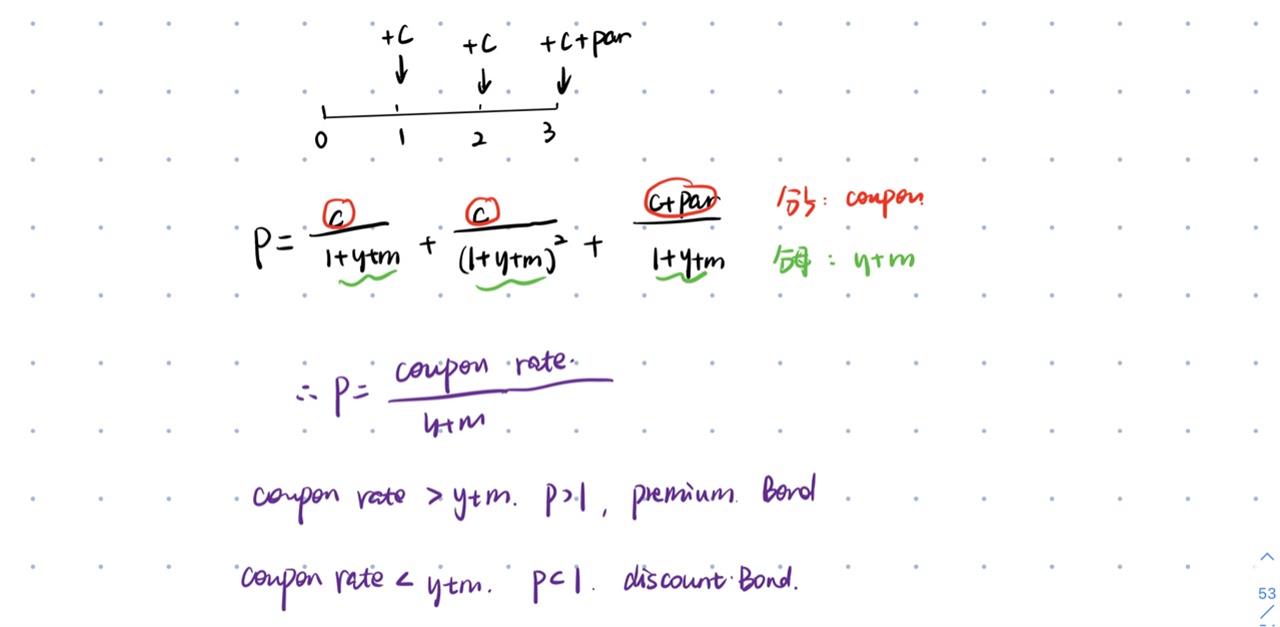 +C +C +C+par
0 1 2 3
P = C/(1+ytm) + C/(1+ytm)² + (C+par)/(1+ytm) 分子: coupon
分母: ytm
∴ P = coupon rate. / ytm
coupon rate > ytm. P>1, premium. Bond
coupon rate < ytm. P<1. discount. Bond.
53
/